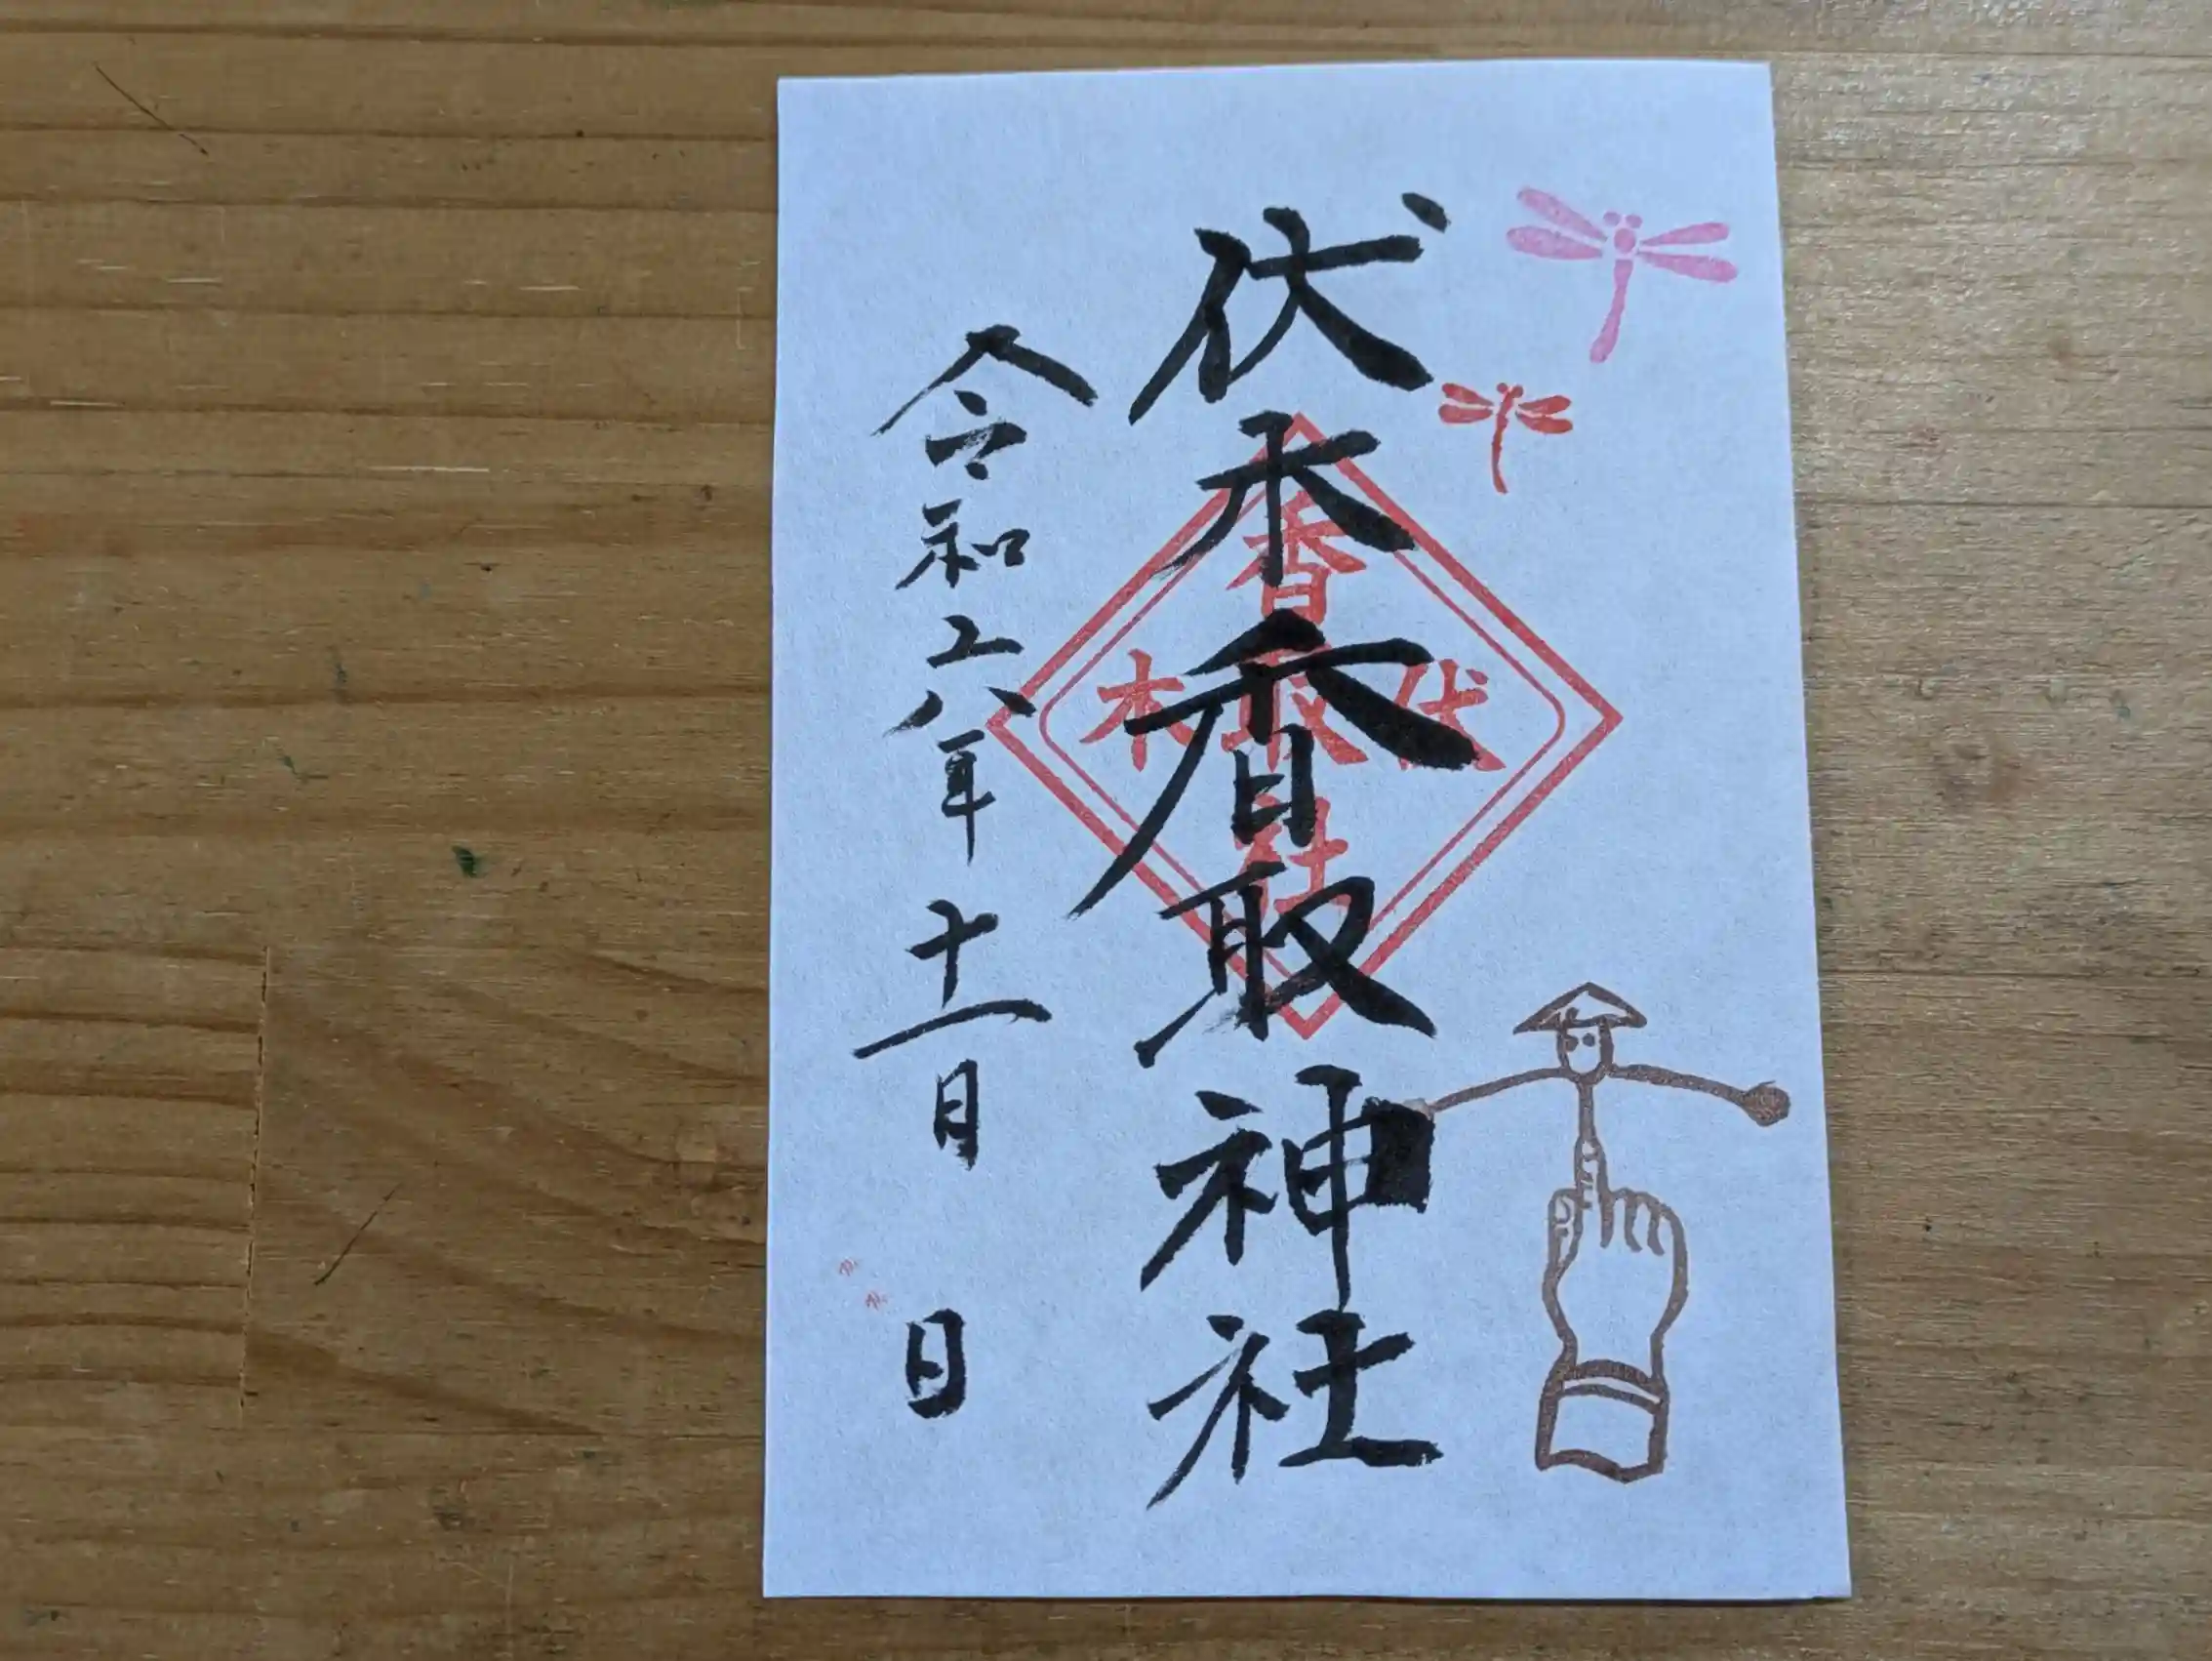 伏木香取神社
令和六年十一月 日
香
伏取木
社